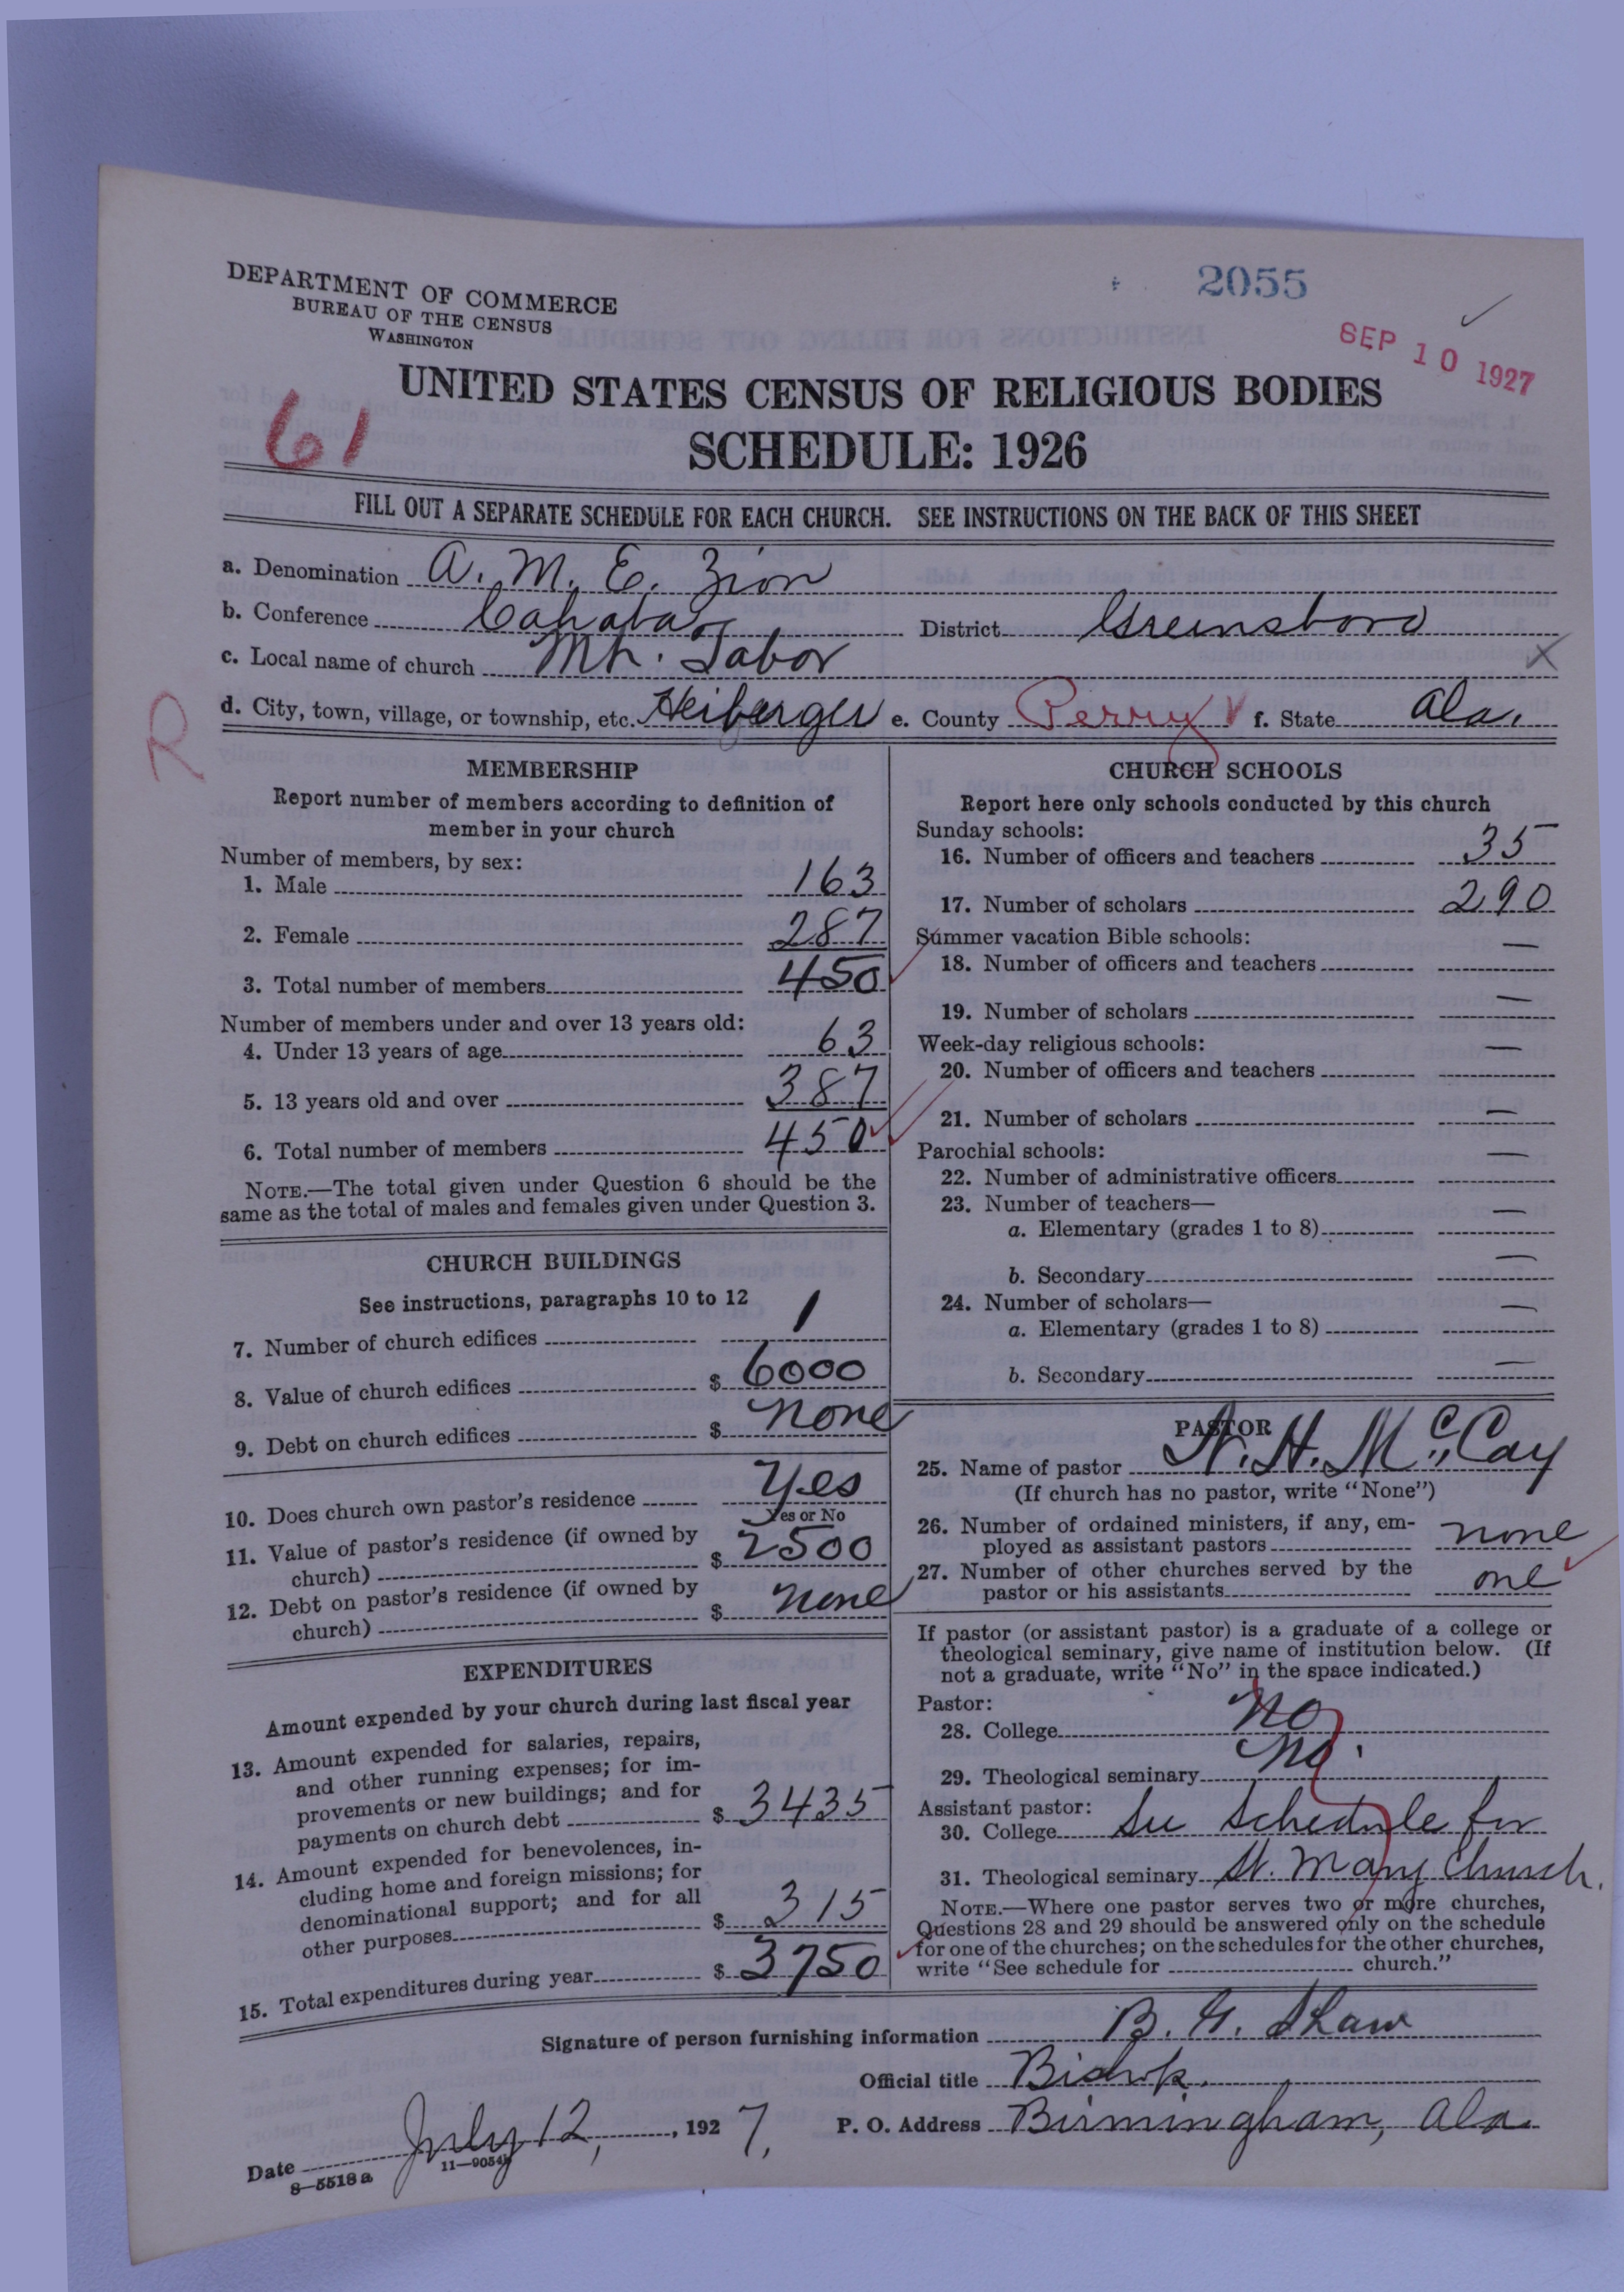 DEPARTMENT OF COMMERCE
BUREAU OF THE CENSUS
WASHINGTON
2055
SEP 10 1927
61
UNITED STATES CENSUS OF RELIGIOUS BODIES
SCHEDULE: 1926
FILL OUT A SEPARATE SCHEDULE FOR EACH CHURCH. SEE INSTRUCTIONS ON THE BACK OF THIS SHEET
a. Denomination A. M. E. Zion
b. Conference Cahaba District Greensboro
c. Local name of church Mt. Tabor
R
d. City, town, village, or township, etc. Heiberger e. County Perry f. State Ala.
MEMBERSHIP
Report number of members according to definition of
member in your church
Number of members, by sex:
1. Male 163
2. Female 287
3. Total number of members 450
Number of members under and over 13 years old:
4. Under 13 years of age 63
5. 13 years old and over 387
6. Total number of members 450
NOTE.—The total given under Question 6 should be the
same as the total of males and females given under Question 3.
CHURCH BUILDINGS
See instructions, paragraphs 10 to 12
7. Number of church edifices 1
8. Value of church edifices $ 6000
9. Debt on church edifices $ none
10. Does church own pastor's residence Yes
Yes or No
11. Value of pastor's residence (if owned by
church) $ 2500
12. Debt on pastor's residence (if owned by
church) $ none
EXPENDITURES
Amount expended by your church during last fiscal year
13. Amount expended for salaries, repairs,
and other running expenses; for im-
provements or new buildings; and for
payments on church debt $ 3435
14. Amount expended for benevolences, in-
cluding home and foreign missions; for
denominational support; and for all
other purposes $ 315
15. Total expenditures during year $ 3750
CHURCH SCHOOLS
Report here only schools conducted by this church
Sunday schools:
16. Number of officers and teachers 35
17. Number of scholars 290
Summer vacation Bible schools:
18. Number of officers and teachers —
19. Number of scholars —
Week-day religious schools:
20. Number of officers and teachers —
21. Number of scholars —
Parochial schools:
22. Number of administrative officers —
23. Number of teachers—
a. Elementary (grades 1 to 8) —
b. Secondary —
24. Number of scholars—
a. Elementary (grades 1 to 8) —
b. Secondary —
PASTOR
25. Name of pastor H. McCay
(If church has no pastor, write "None")
26. Number of ordained ministers, if any, em-
ployed as assistant pastors none
27. Number of other churches served by the
pastor or his assistants one
If pastor (or assistant pastor) is a graduate of a college or
theological seminary, give name of institution below. (If
not a graduate, write "No" in the space indicated.)
Pastor:
28. College No
29. Theological seminary No.
Assistant pastor:
30. College See Schedule for
31. Theological seminary St. Mary Church.
NOTE.—Where one pastor serves two or more churches,
Questions 28 and 29 should be answered only on the schedule
for one of the churches; on the schedules for the other churches,
write "See schedule for church."
Signature of person furnishing information B. G. Shaw
Official title Bishop.
Date July 12, 1927. P. O. Address Birmingham, Ala.
8—5518 a